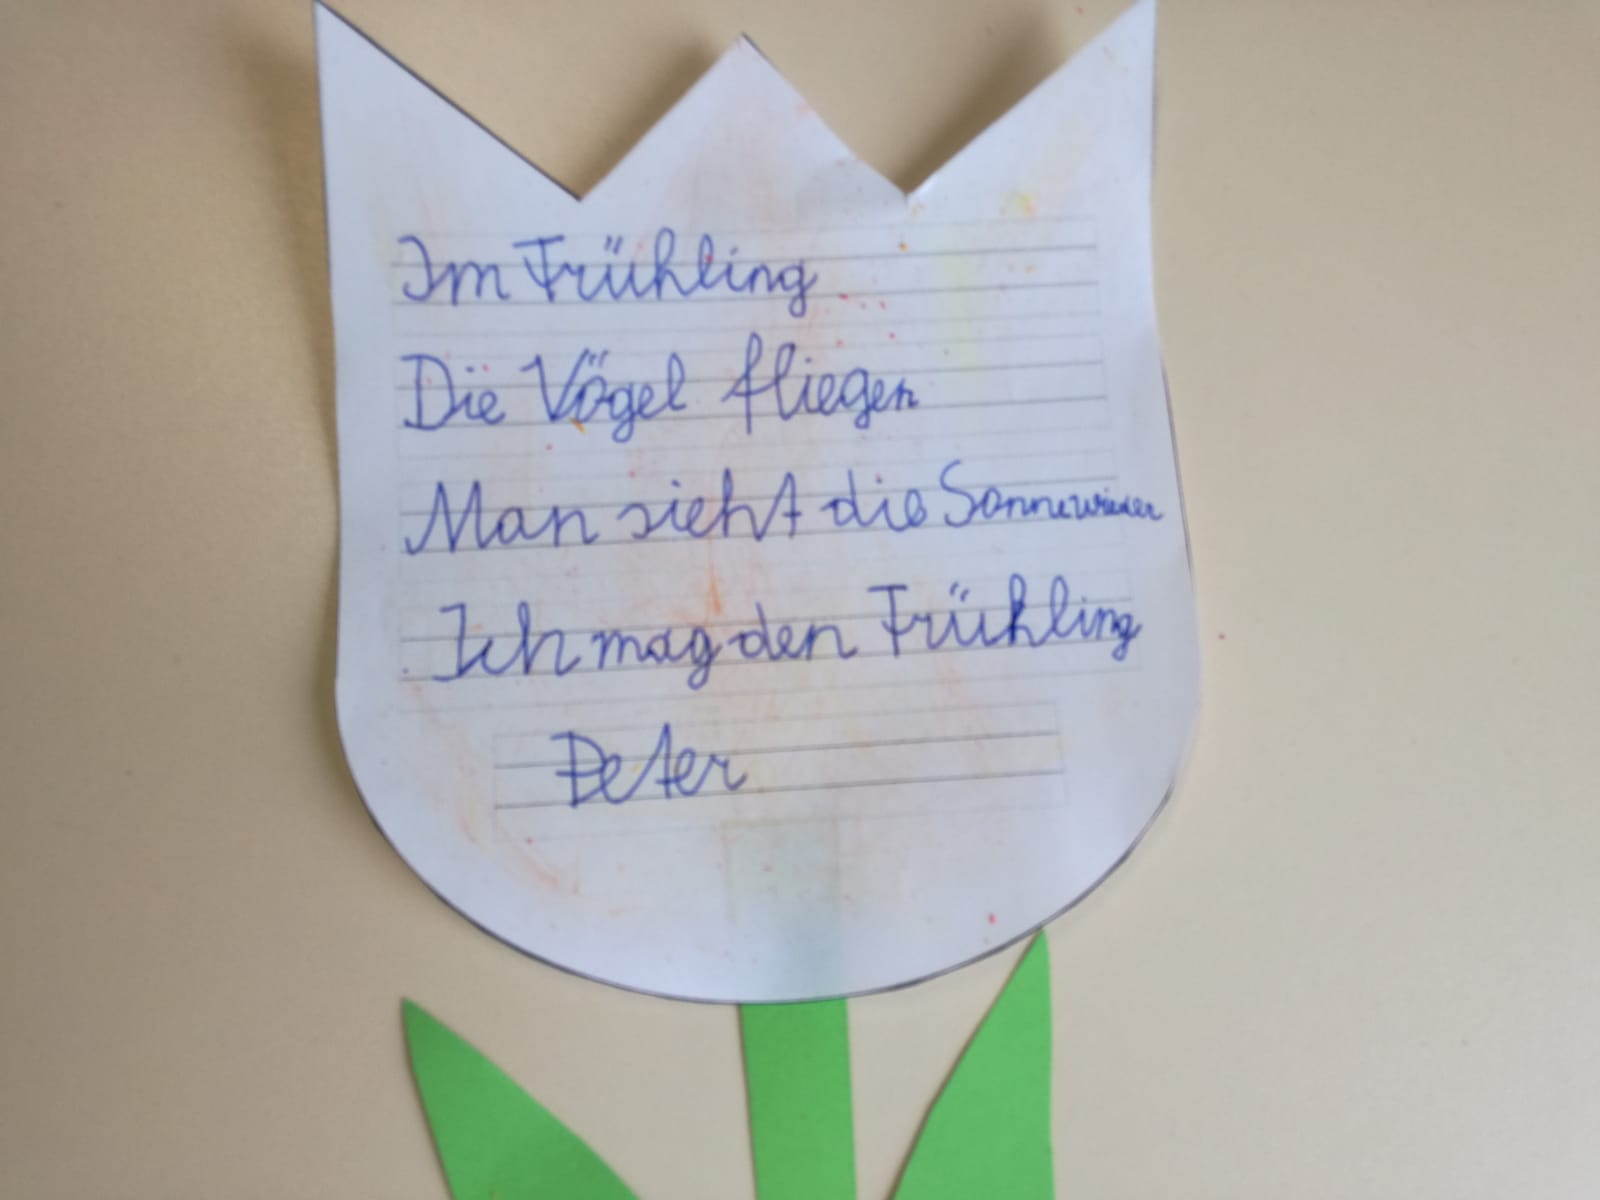 Im Frühling
Die Vögel fliegen
Man sieht die Sonne wieder
Ich mag den Frühling
Peter